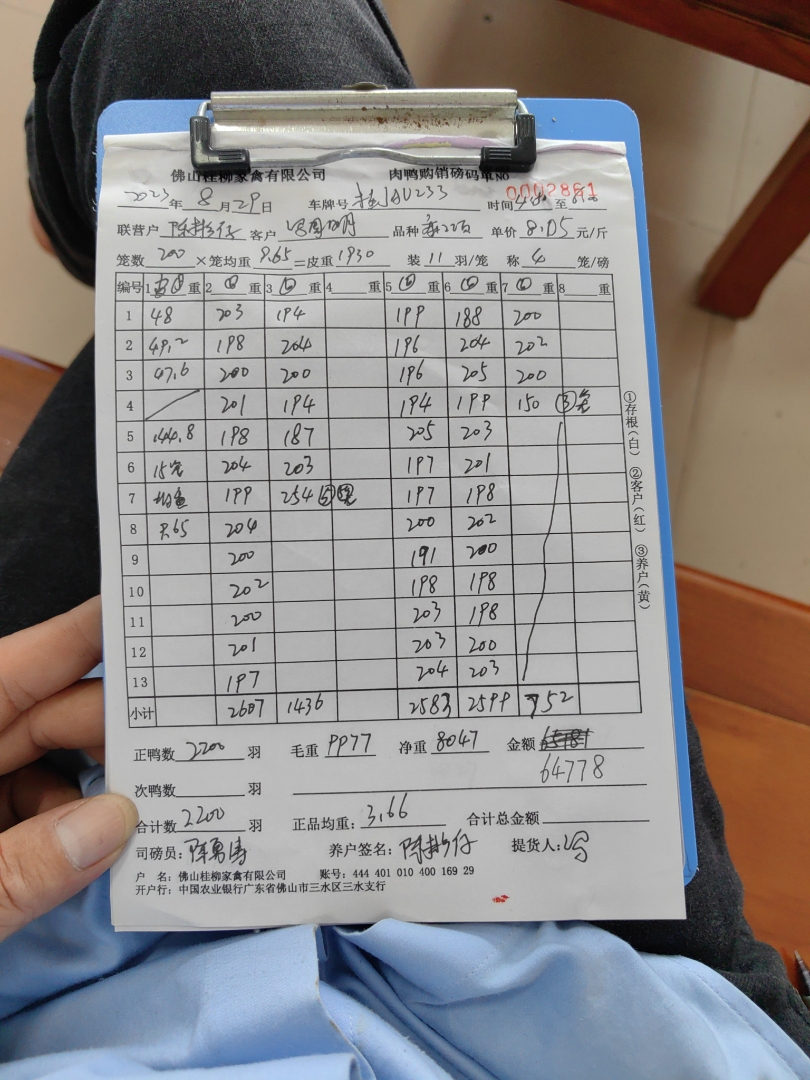 佛山桂柳家禽有限公司 肉鸭购销磅码单 NO 0002861
2023年8月29日 车牌号 桂JAU233 时间 至
联营户 客户 品种 单价 8.05 元/斤
笼数 200 ×笼均重 9.65 =皮重 1930 装 11 羽/笼 称 4 笼/磅
编号 1 重 2 重 3 重 4 重 5 重 6 重 7 重 8 重
1 48 203 194 199 188 200
2 49.2 198 204 196 204 202
3 47.6 200 200 196 205 200
4 201 194 194 199 150 ③笼
5 144.8 198 187 205 203
6 15笼 204 203 197 201
7 199 254 197 198
8 9.65 204 200 202
9 200 191 200
10 202 198 198
11 200 203 198
12 201 203 200
13 197 204 203
小计 2607 1436 2583 2599 752
正鸭数 2200 羽 毛重 9977 净重 8047 金额
64778
次鸭数 羽
合计数 2200 羽 正品均重: 3.66 合计总金额
司磅员: 养户签名: 提货人:
户 名: 佛山桂柳家禽有限公司 账号: 444 401 010 400 169 29
开户行: 中国农业银行广东省佛山市三水区三水支行
①存根(白) ②客户(红) ③养户(黄)